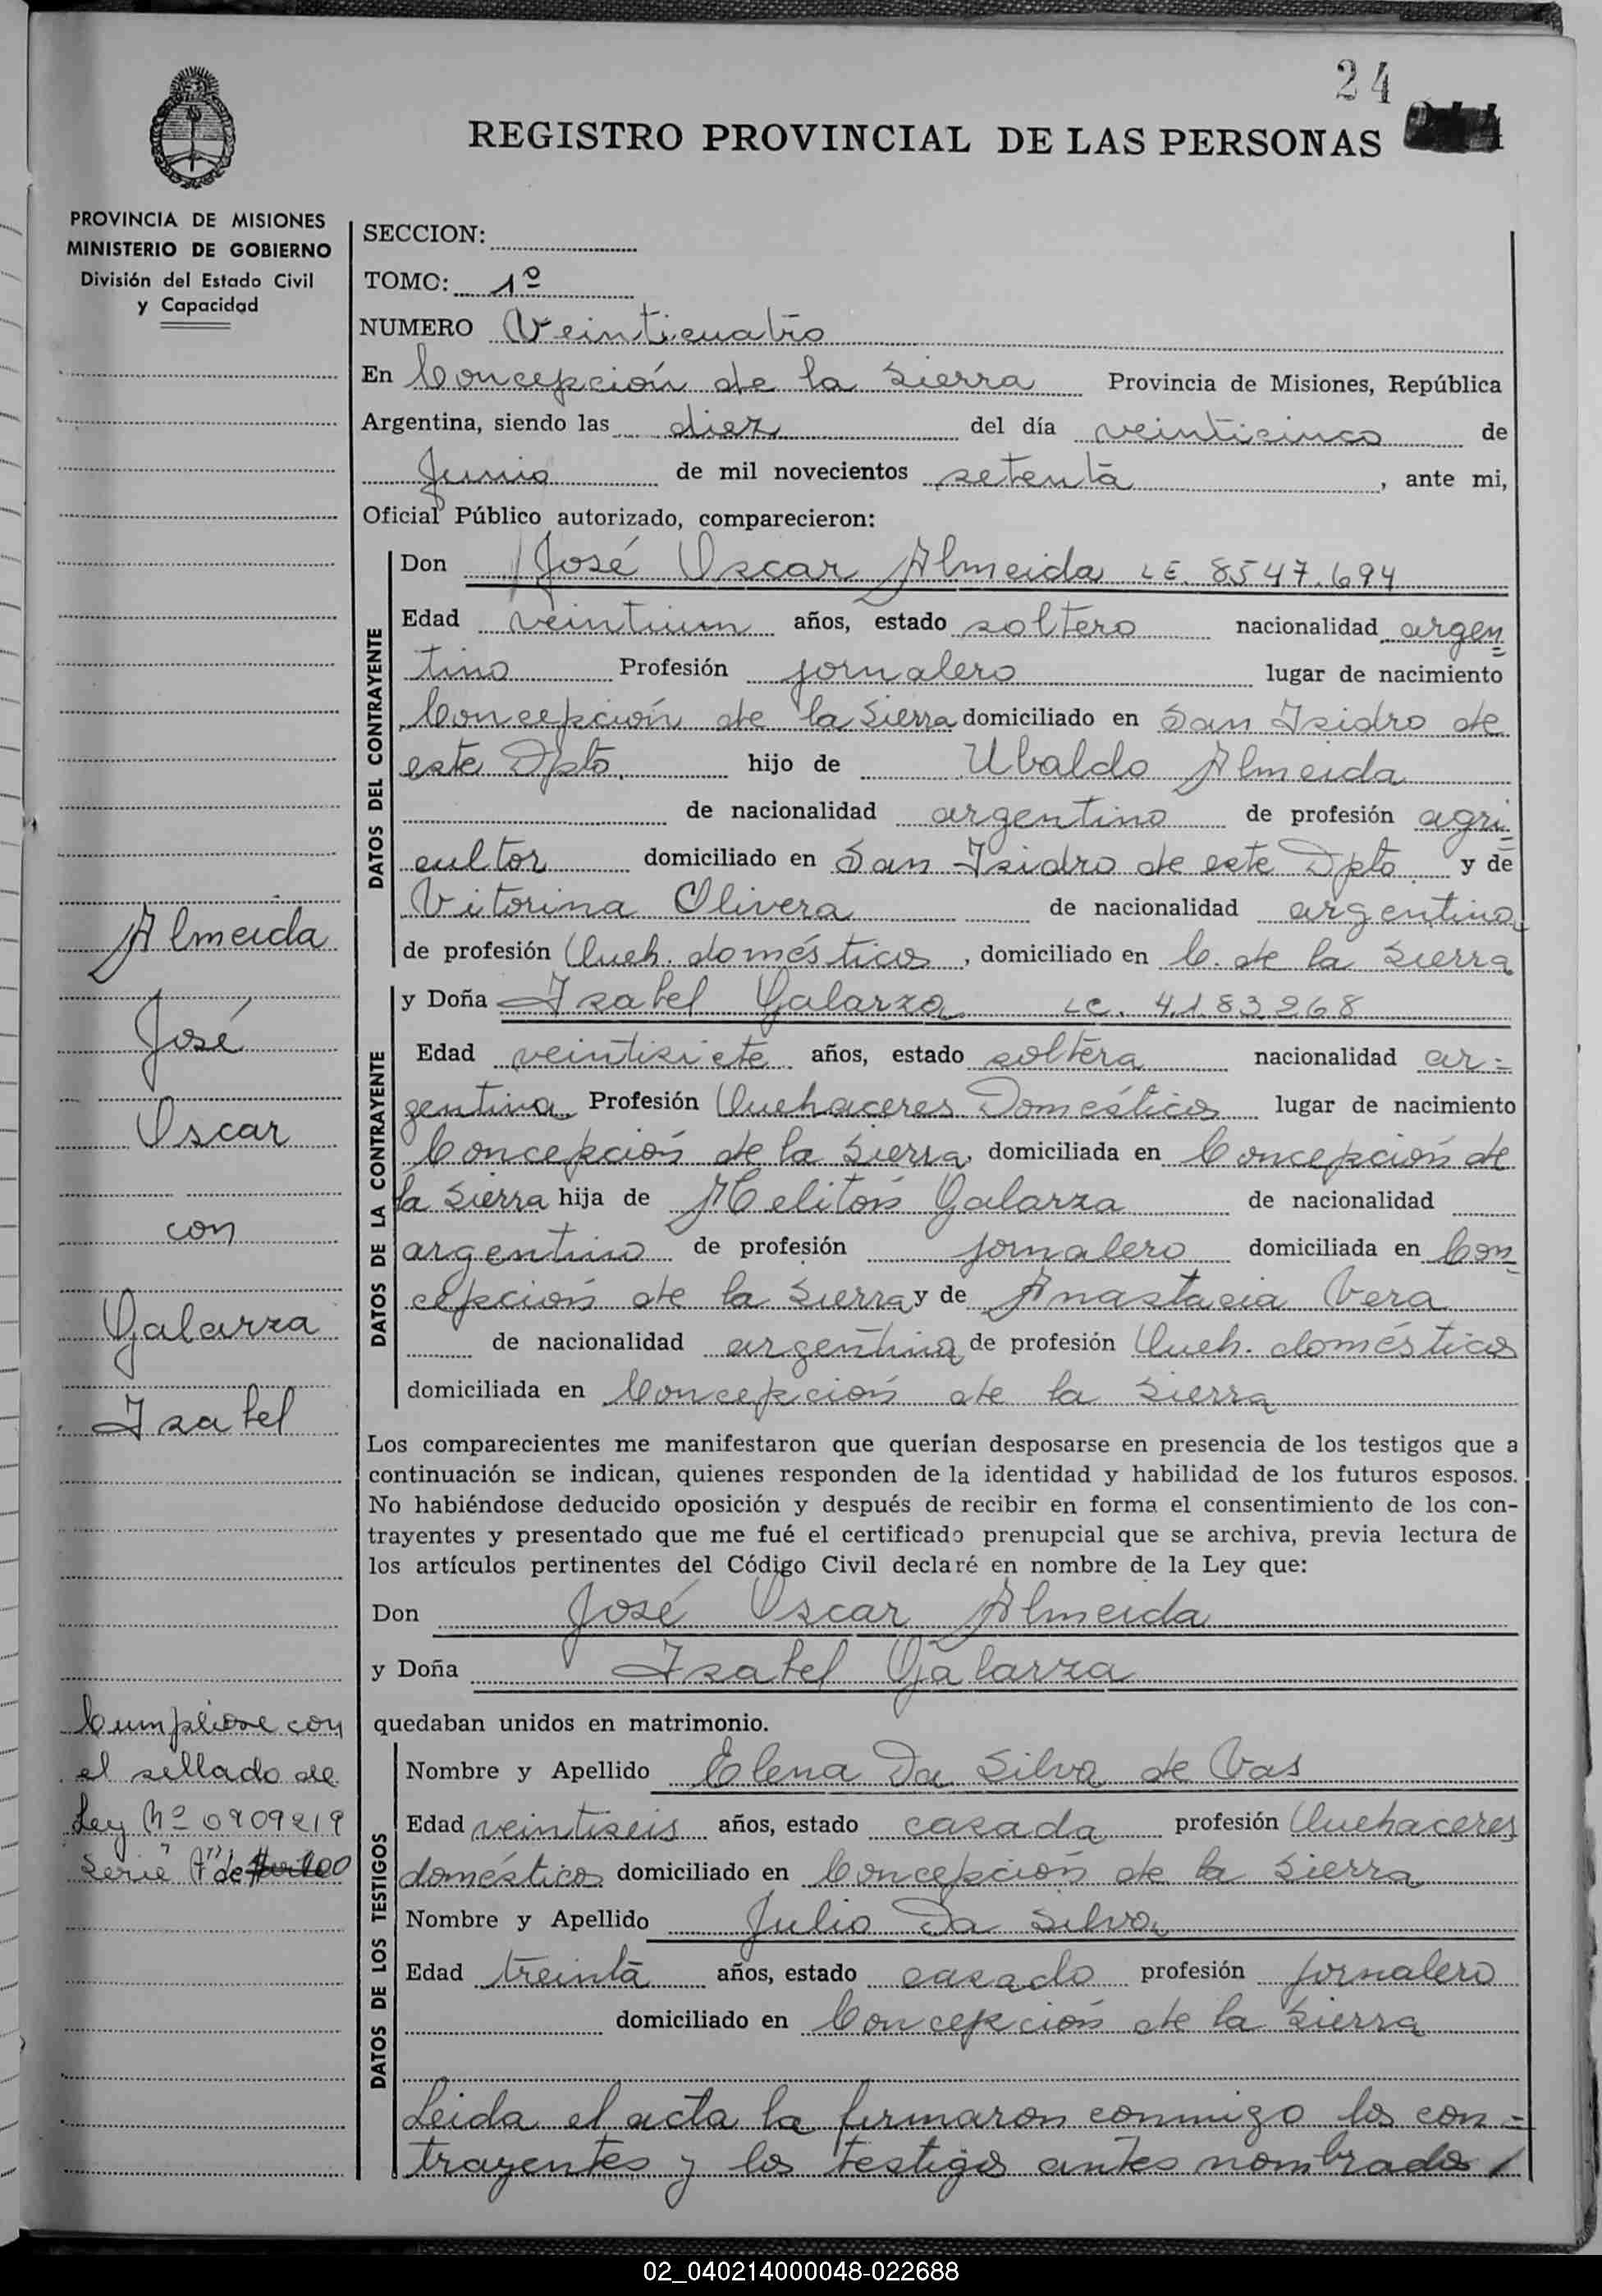 24
REGISTRO PROVINCIAL DE LAS PERSONAS
PROVINCIA DE MISIONES
MINISTERIO DE GOBIERNO
División del Estado Civil
y Capacidad
SECCION:
TOMO: 1º
NUMERO Veinticuatro
En Concepción de la Sierra Provincia de Misiones, República
Argentina, siendo las diez del día veinticinco de
Junio de mil novecientos setenta, ante mi,
Oficial Público autorizado, comparecieron:
DATOS DEL CONTRAYENTE
Don José Oscar Almeida LE. 8547.694
Edad veintiun años, estado soltero nacionalidad argen=
tino Profesión jornalero lugar de nacimiento
Concepción de la Sierra domiciliado en San Isidro de
este Dpto. hijo de Ubaldo Almeida
de nacionalidad argentino de profesión agri=
cultor domiciliado en San Isidro de este Dpto. y de
Vitorina Olivera de nacionalidad argentina
de profesión Queh. domésticos, domiciliado en C. de la Sierra
DATOS DE LA CONTRAYENTE
y Doña Isabel Galarza LC. 4.183268
Edad veintisiete años, estado soltera nacionalidad ar=
gentina Profesión Quehaceres Domésticos lugar de nacimiento
Concepción de la Sierra, domiciliada en Concepción de
la Sierra hija de Melitón Galarza de nacionalidad
argentino de profesión jornalero domiciliada en Con=
cepción de la Sierra y de Anastacia Vera
de nacionalidad argentina de profesión Queh. domésticos
domiciliada en Concepción de la Sierra
Los comparecientes me manifestaron que querían desposarse en presencia de los testigos que a
continuación se indican, quienes responden de la identidad y habilidad de los futuros esposos.
No habiéndose deducido oposición y después de recibir en forma el consentimiento de los con-
trayentes y presentado que me fué el certificado prenupcial que se archiva, previa lectura de
los artículos pertinentes del Código Civil declaré en nombre de la Ley que:
Don José Oscar Almeida
y Doña Isabel Galarza
quedaban unidos en matrimonio.
DATOS DE LOS TESTIGOS
Nombre y Apellido Elena Da Silva de Vas
Edad veintiseis años, estado casada profesión Quehaceres
domésticos domiciliado en Concepción de la Sierra
Nombre y Apellido Julio Da Silva
Edad treinta años, estado casado profesión jornalero
domiciliado en Concepción de la Sierra
Leida el acta la firmaron conmigo los con=
trayentes y los testigos antes nombrados/
Almeida
José
Oscar
con
Galarza
Isabel
Cumpliose con
el sellado de
Ley Nº 0909219
Serie "A" de
02_040214000048-022688